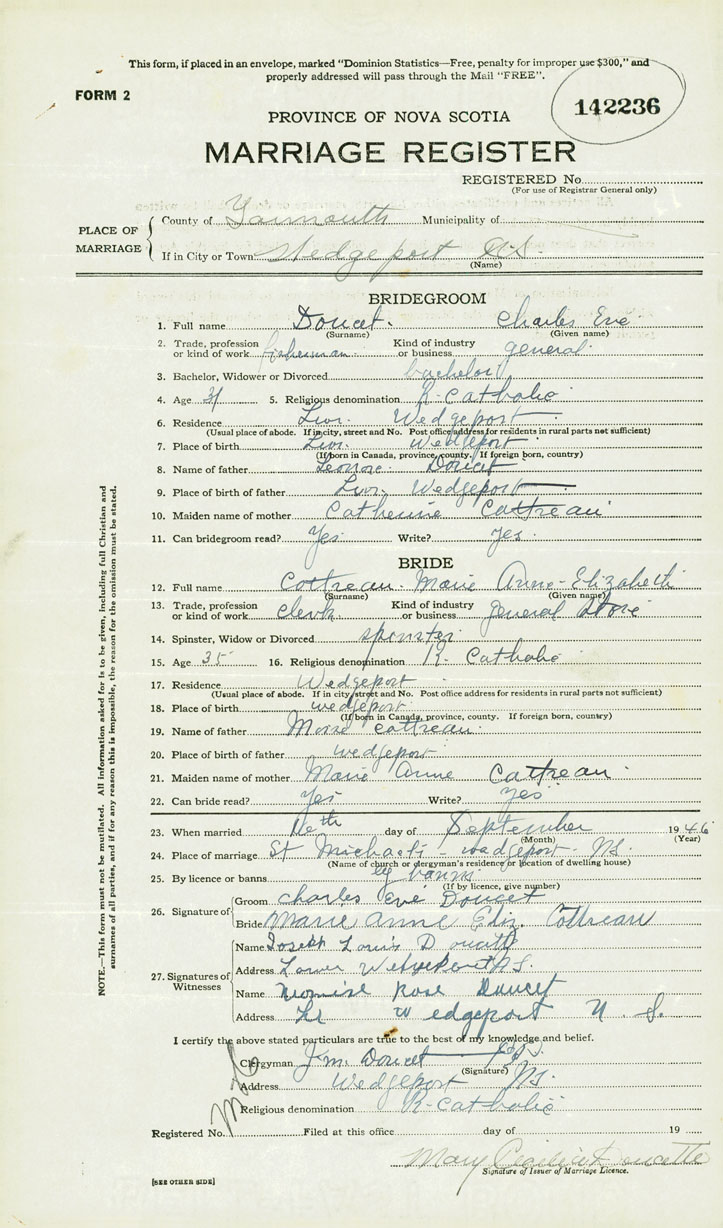 This form, if placed in an envelope, marked "Dominion Statistics—Free, penalty for improper use $300," and
properly addressed will pass through the Mail "FREE".
FORM 2
142236
PROVINCE OF NOVA SCOTIA
MARRIAGE REGISTER
REGISTERED No.
(For use of Registrar General only)
PLACE OF MARRIAGE
County of Yarmouth Municipality of
If in City or Town Wedgeport N.S.
(Name)
BRIDEGROOM
1. Full name Doucet. Charles Evé
(Surname) (Given name)
2. Trade, profession or kind of work fisherman Kind of industry or business general
3. Bachelor, Widower or Divorced bachelor
4. Age 31 5. Religious denomination R. Catholic
6. Residence Lwr. Wedgeport
(Usual place of abode. If in city, street and No. Post office address for residents in rural parts not sufficient)
7. Place of birth Lwr. Wedgeport
(If born in Canada, province, county. If foreign born, country)
8. Name of father Doucet
9. Place of birth of father Lwr. Wedgeport
10. Maiden name of mother Catherine Cottreau
11. Can bridegroom read? Yes Write? yes.
BRIDE
12. Full name Cottreau. Marie Anne-Elizabeth
(Surname) (Given name)
13. Trade, profession or kind of work clerk Kind of industry or business general store
14. Spinster, Widow or Divorced spinster
15. Age 35 16. Religious denomination R. Catholic
17. Residence Wedgeport
(Usual place of abode. If in city, street and No. Post office address for residents in rural parts not sufficient)
18. Place of birth wedgeport
(If born in Canada, province, county. If foreign born, country)
19. Name of father cottreau.
20. Place of birth of father wedgeport
21. Maiden name of mother Marie Anne Cottreau
22. Can bride read? Yes Write? yes
23. When married day of September 1946
(Month) (Year)
24. Place of marriage St Michael's - wedgeport N.S.
(Name of church or clergyman's residence or location of dwelling house)
25. By licence or banns by banns
(If by licence, give number)
26. Signature of
Groom Charles Evé Doucet
Bride Marie Anne Eliz. Cottreau
27. Signatures of Witnesses
Name Joseph Louis Doucette
Address Lower Wedgeport N.S.
Name Rose Doucet
Address Lr Wedgeport N. S.
I certify the above stated particulars are true to the best of my knowledge and belief.
Clergyman J.M. Doucet
(Signature)
Address Wedgeport N.S.
Religious denomination R. Catholic
Registered No. Filed at this office day of 19
Mary Cecilia Doucette
Signature of Issuer of Marriage Licence.
[SEE OTHER SIDE]
NOTE.—This form must not be mutilated. All information asked for is to be given, including full Christian and
surnames of all parties, and if for any reason this is impossible, the reason for the omission must be stated.